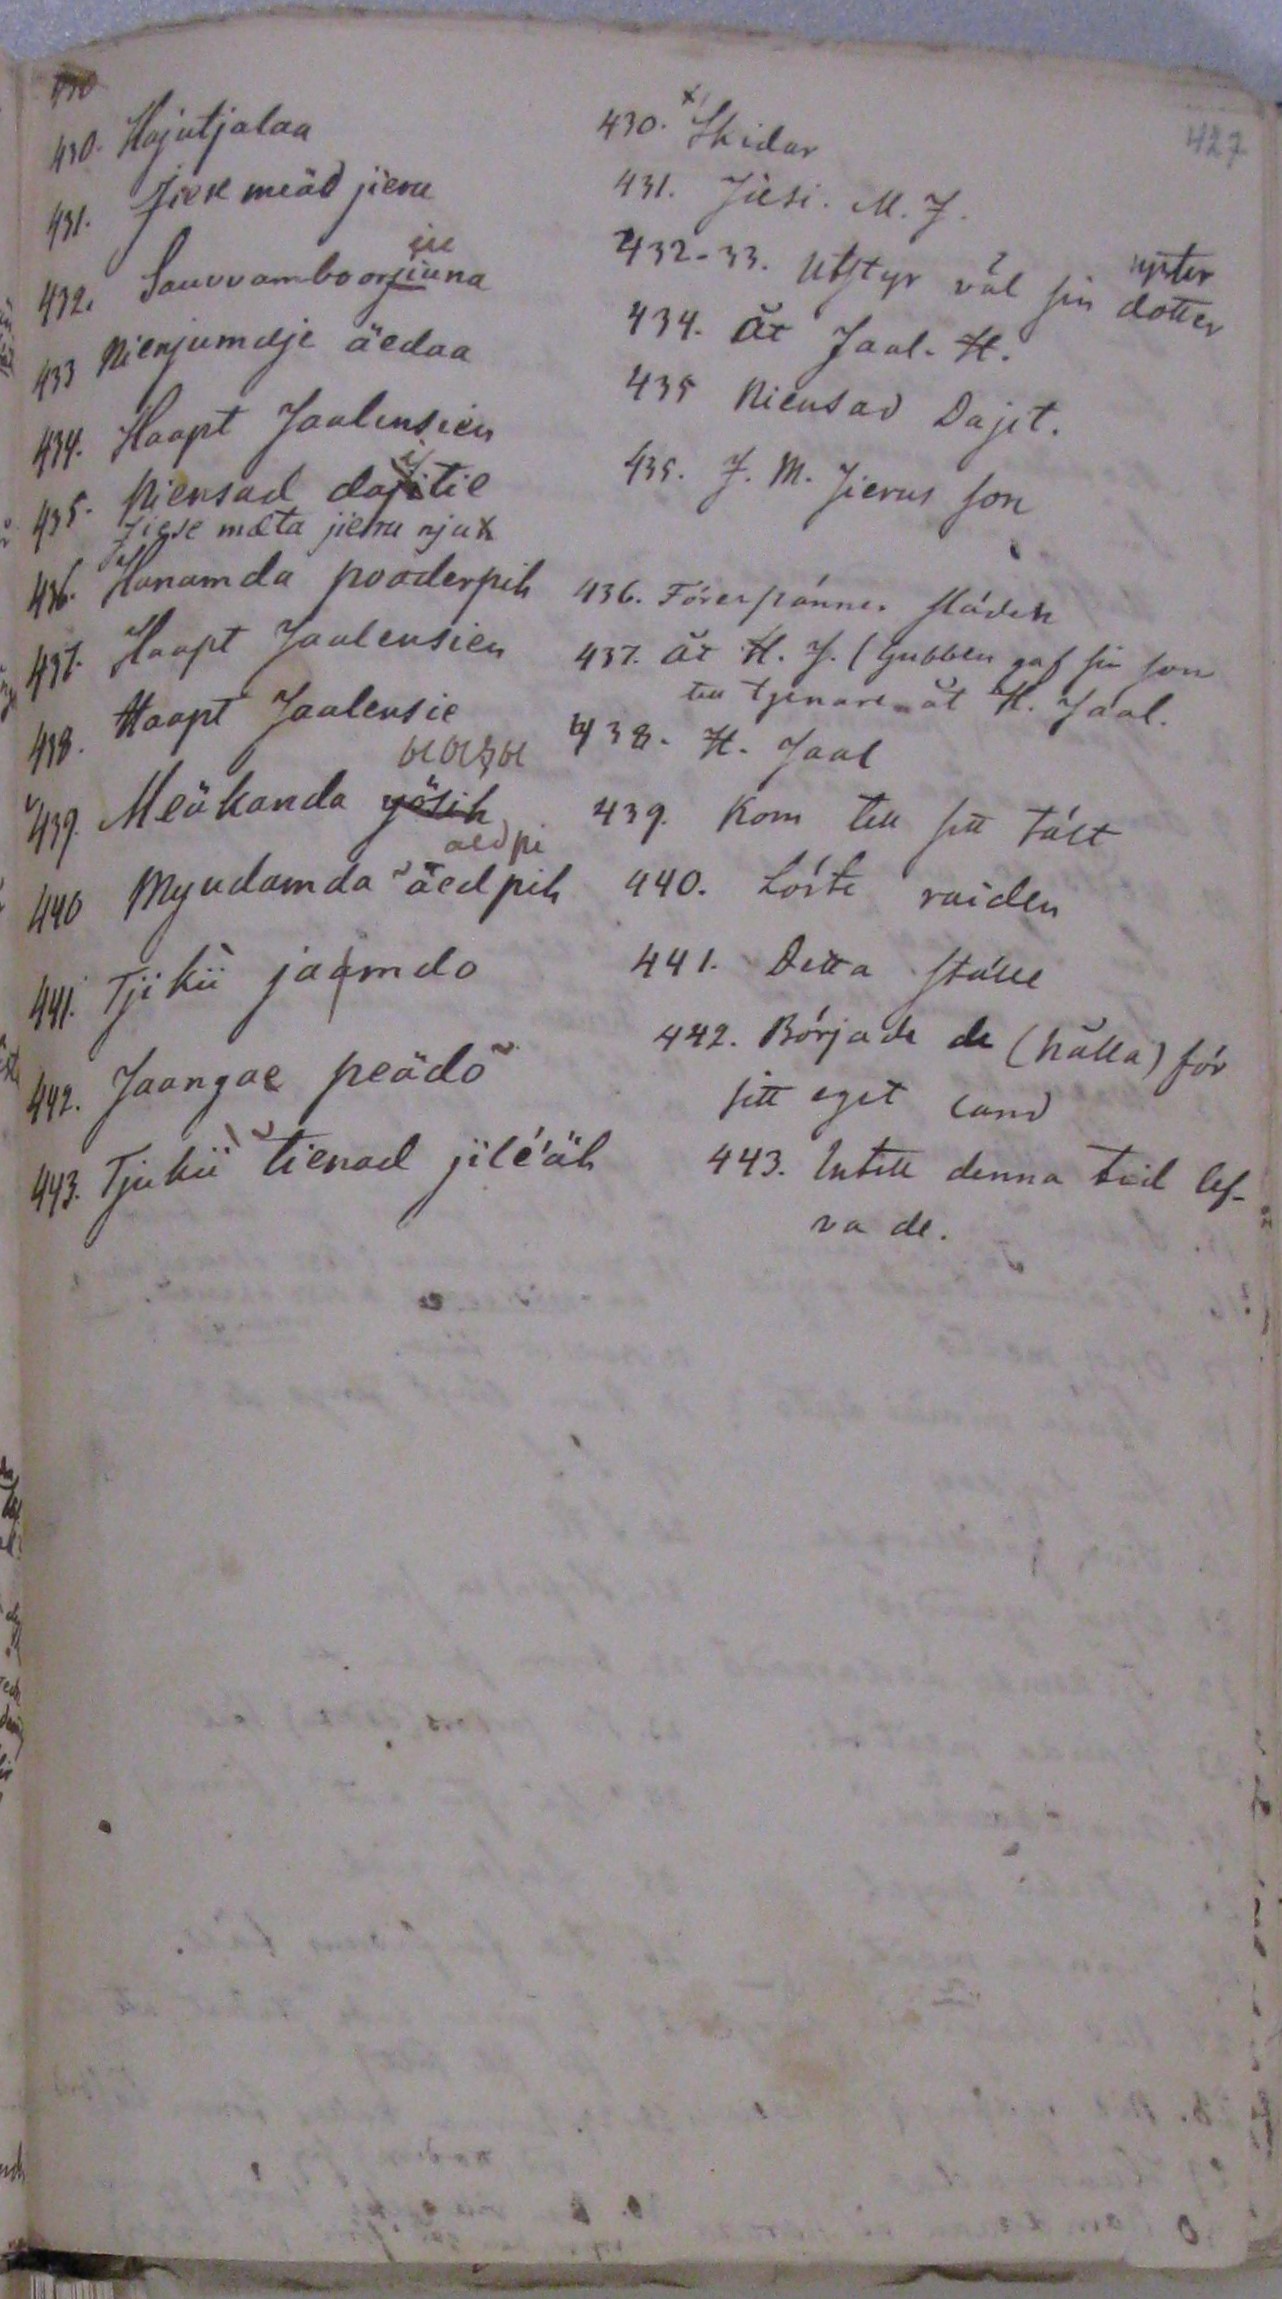 427
430. Hajutjalaa
431. Jiese meäd jieru
432. Sauvvamboorjiuna
433 Nienjumdje äedaa
434. Haapt Jaalensien
435. Niensad dajitie
Jiese mäta jieru nju
436. Hanamda pooderpih
437. Haapt Jaalensien
438. Haapt Jaalensie
439. Meäkanda yösih
aedpi
440 Myudamda äedpih
441. Tjikii jaamdo
442. Jaangae peädö
443. Tjikii tienad jilé'äh
430. Skidar
431. Jiesi. M. J.
432-33. Utstyr väl sin dotter
434. Åt Jaal. H.
435 Niensad Dajit.
435. J. M. Jierus son
436. Förespänner släden
437. Åt H. J. (Gubben gaf sin son
till tjenare åt H. Jaal.
438. H. Jaal
439. Kom till sitt tält
440. Löste raiden
441. Detta ställe
442. Började de (hålla) för
sitt eget land
443. Intill denna tid lef-
va de.